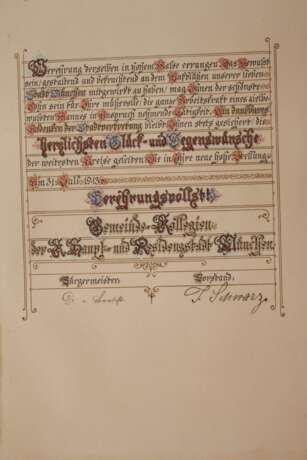 Verehrung derselben in hohem Maße errungen. Das Bewußt
sein, gestaltend und befruchtend an dem Aufblühen unserer lieben
Stadt München mitgewirkt zu haben, mag Ihnen der schönste
Lohn sein für Ihre mühevolle, die ganze Arbeitskraft eines zielbe-
wußten Mannes in Anspruch nehmende Tätigkeit. Ein dankbares
Andenken der Stadtvertretung bleibt Ihnen stets gesichert, die
herzlichsten Glück- und Segenswünsche
der weitesten Kreise geleiten Sie in Ihre neue hohe Stellung.
Am 31. Juli 1913.
Verehrungsvollst!
Gemeinde-Kollegien
der K. Haupt- und Residenzstadt München.
Bürgermeister: Vorstand:
Dr. v. F. Schwarz